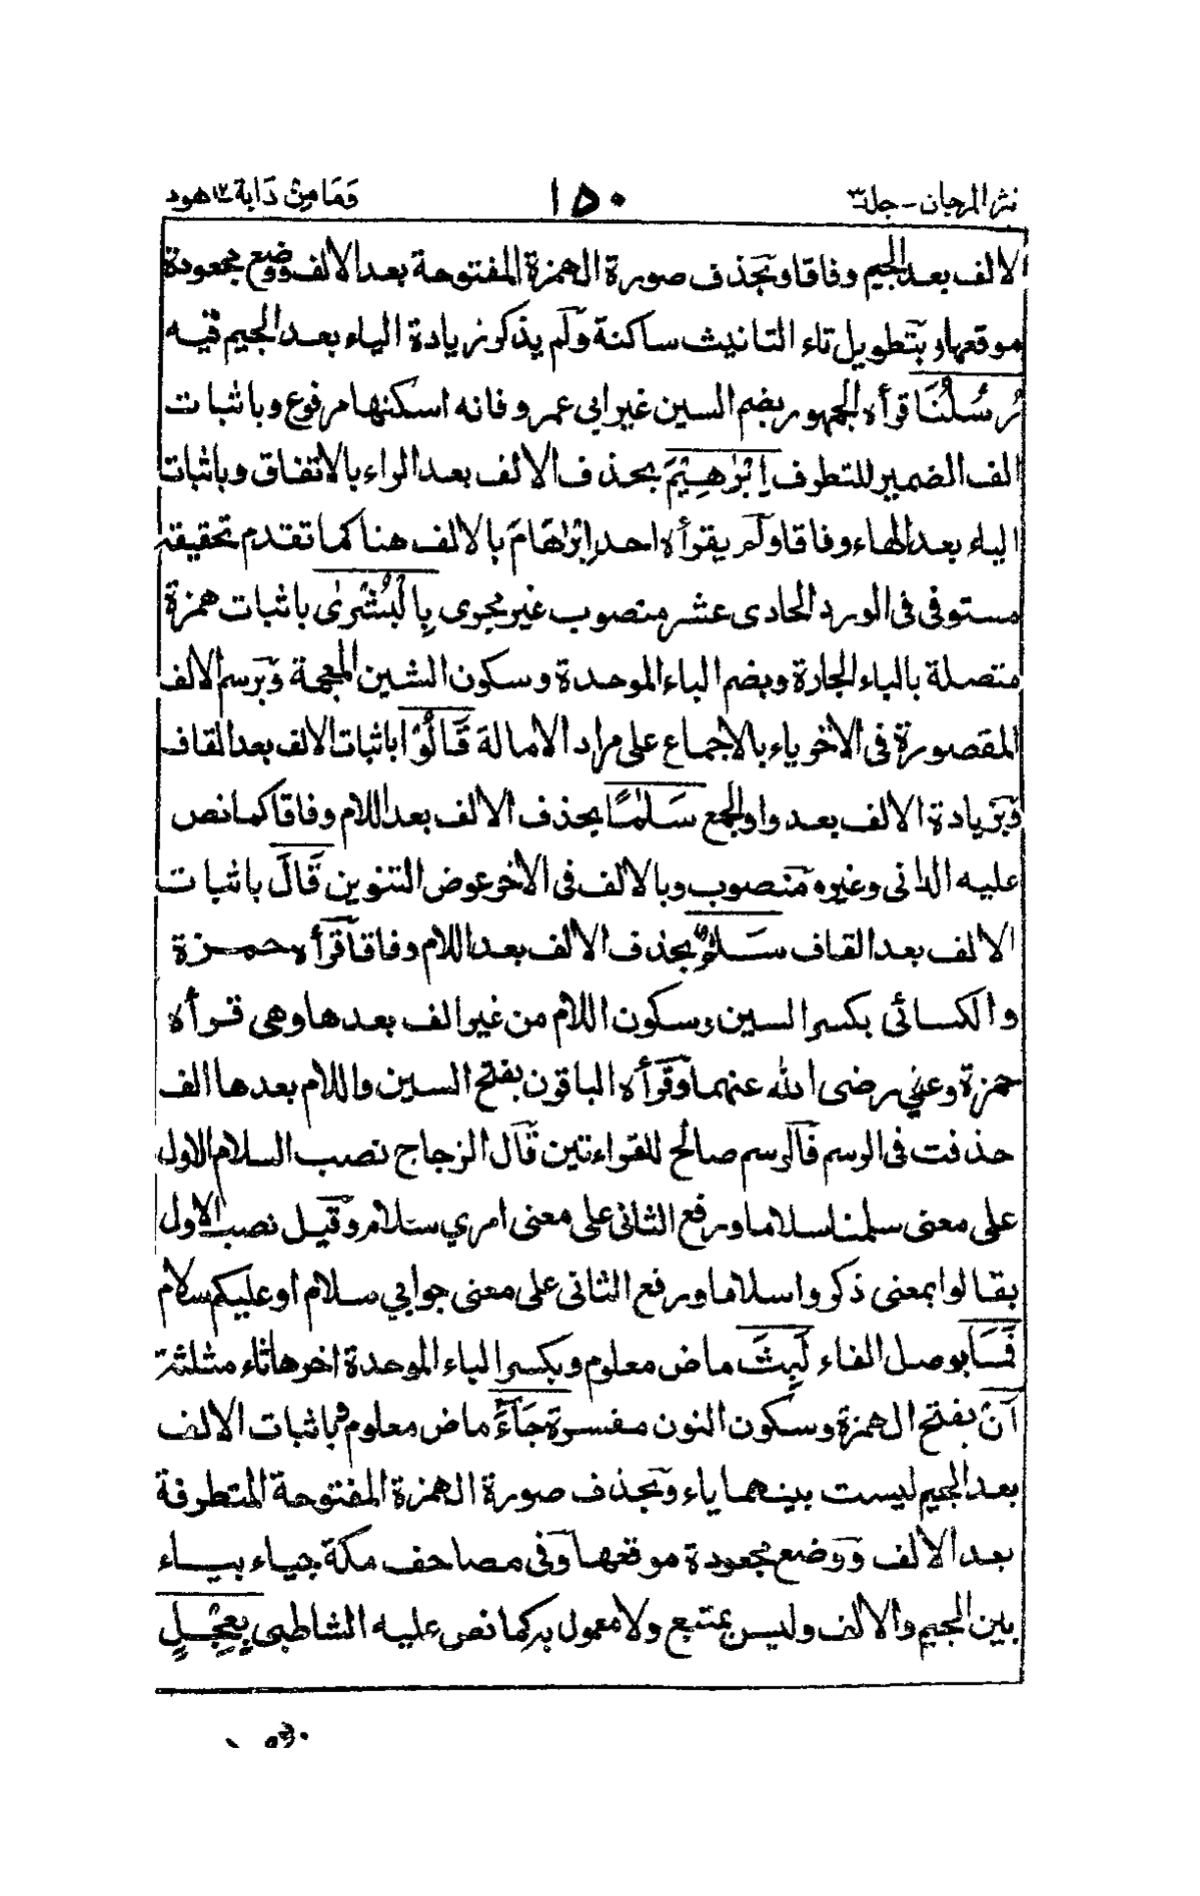 نثر المرجان - جلد ٣ ١٥٠ وَمَا مِنْ دَابة ١٢ هود
الالف بعد الجيم وفاقا وبحذف صورة الهمزة المفتوحة بعد الالف ووضع مجعودة
موقعها وبتطويل تاء التانيث ساكنة ولم يذكر زيادة الياء بعد الجيم فيه
رُسُلُنَا قرأه الجمهور بضم السين غير ابى عمرو فانه اسكنها مرفوع وباثبات
الف الضمير للتطرف اِبْرٰهِيْمَ بحذف الالف بعد الراء بالاتفاق وباثبات
الياء بعد الهاء وفاقا ولم يقرأه احد اِبْرَاهَامَ بالالف هنا كما تقدم تحقيقه
مستوفى فى الورد الحادى عشر منصوب غير مجرى بِالْبُشْرٰى باثبات همزة
متصلة بالباء الجارة وبضم الباء الموحدة وسكون الشين المعجمة وبرسم الالف
المقصورة فى الاخر ياء بالاجماع على مراد الامالة قَالُوْا باثبات الالف بعد القاف
وبزيادة الالف بعد واو الجمع سَلٰمًا بحذف الالف بعد اللام وفاقا كما نص
عليه الدانى وغيره منصوب وبالالف فى الاخر عوض التنوين قَالَ باثبات
الالف بعد القاف سَلٰمٌ بحذف الالف بعد اللام وفاقا قرأه حمزة
والكسائى بكسر السين وسكون اللام من غير الف بعدها وهى قرأه
حمزة وعلي رضى الله عنهما وقرأه الباقون بفتح السين واللام بعدها الف
حذفت فى الرسم فالرسم صالح للقراءتين قال الزجاج نصب السلام الاول
على معنى سلمنا سلاما ورفع الثانى على معنى امري سلام وقيل نصب الاول
بقالوا بمعنى ذكروا سلاما ورفع الثانى على معنى جوابي سلام او عليكم سلام
فَمَا بوصل الفاء لَبِثَ ماض معلوم وبكسر الباء الموحدة اخرها ثاء مثلثة
اَنْ بفتح الهمزة وسكون النون مفسرة جَاءَ ماض معلوم وباثبات الالف
بعد الجيم ليست بينهما ياء وبحذف صورة الهمزة المفتوحة المتطرفة
بعد الالف ووضع مجعودة موقعها وفى مصاحف مكة جياء بياء
بين الجيم والالف وليس بمتبع ولا معمول به كما نص عليه الشاطبى بِعِجْلٍ